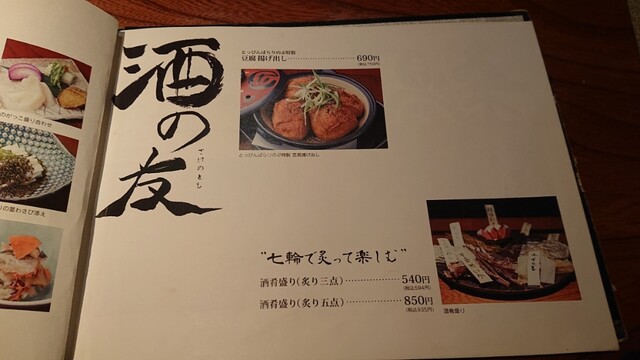 酒の友
さけのとも
とっぴんぱらりのぷ特製
豆腐揚げ出し 690円
(税込759円)
とっぴんぱらりのぷ特製 豆腐揚げ出し
"七輪で炙って楽しむ"
酒肴盛り(炙り三点) 540円
(税込594円)
酒肴盛り(炙り五点) 850円
(税込935円)
酒肴盛り
のがっこ盛り合わせ
の茎わさび添え